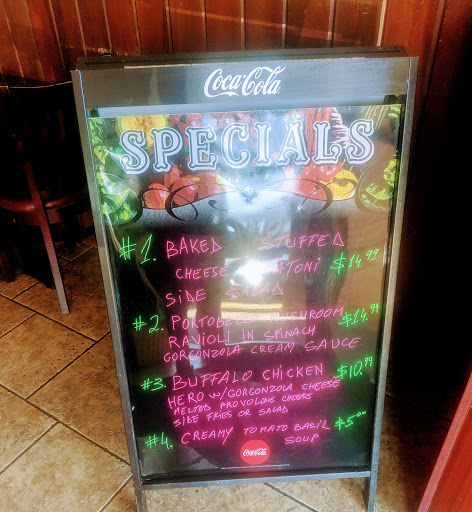 Coca-Cola
SPECIALS
#1. BAKED STUFFED
CHEESE
$14.99
SIDE SALAD
#2. PORTOBELLO MUSHROOM $14.99
RAVIOLI IN SPINACH
GORGONZOLA CREAM SAUCE
#3. BUFFALO CHICKEN $10.99
HERO W/GORGONZOLA CHEESE
MELTED PROVOLONE CHEESE
SIDE FRIES OR SALAD
#4. CREAMY TOMATO BASIL $5.00
SOUP
Coca-Cola